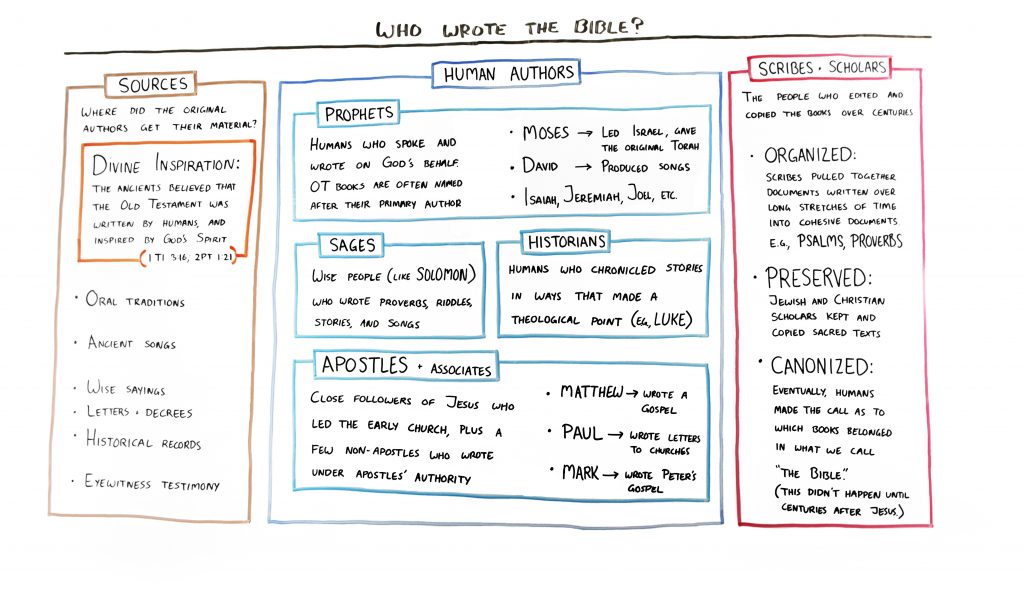 WHO WROTE THE BIBLE?
SOURCES
WHERE DID THE ORIGINAL
AUTHORS GET THEIR MATERIAL?
DIVINE INSPIRATION:
THE ANCIENTS BELIEVED THAT
THE OLD TESTAMENT WAS
WRITTEN BY HUMANS, AND
INSPIRED BY GOD'S SPIRIT
(1 TI 3:16, 2PT 1:21)
• ORAL TRADITIONS
• ANCIENT SONGS
• WISE SAYINGS
• LETTERS + DECREES
• HISTORICAL RECORDS
• EYEWITNESS TESTIMONY
HUMAN AUTHORS
PROPHETS
HUMANS WHO SPOKE AND
WROTE ON GOD'S BEHALF.
OT BOOKS ARE OFTEN NAMED
AFTER THEIR PRIMARY AUTHOR
• MOSES → LED ISRAEL, GAVE
THE ORIGINAL TORAH
• DAVID → PRODUCED SONGS
• ISAIAH, JEREMIAH, JOEL, ETC.
SAGES
WISE PEOPLE (LIKE SOLOMON)
WHO WROTE PROVERBS, RIDDLES,
STORIES, AND SONGS
HISTORIANS
HUMANS WHO CHRONICLED STORIES
IN WAYS THAT MADE A
THEOLOGICAL POINT (EG, LUKE)
APOSTLES + ASSOCIATES
CLOSE FOLLOWERS OF JESUS WHO
LED THE EARLY CHURCH, PLUS A
FEW NON-APOSTLES WHO WROTE
UNDER APOSTLES' AUTHORITY
• MATTHEW → WROTE A
GOSPEL
• PAUL → WROTE LETTERS
TO CHURCHES
• MARK → WROTE PETER'S
GOSPEL
SCRIBES + SCHOLARS
THE PEOPLE WHO EDITED AND
COPIED THE BOOKS OVER CENTURIES
• ORGANIZED:
SCRIBES PULLED TOGETHER
DOCUMENTS WRITTEN OVER
LONG STRETCHES OF TIME
INTO COHESIVE DOCUMENTS.
E.G., PSALMS, PROVERBS
• PRESERVED:
JEWISH AND CHRISTIAN
SCHOLARS KEPT AND
COPIED SACRED TEXTS
• CANONIZED:
EVENTUALLY, HUMANS
MADE THE CALL AS TO
WHICH BOOKS BELONGED
IN WHAT WE CALL
"THE BIBLE."
(THIS DIDN'T HAPPEN UNTIL
CENTURIES AFTER JESUS.)